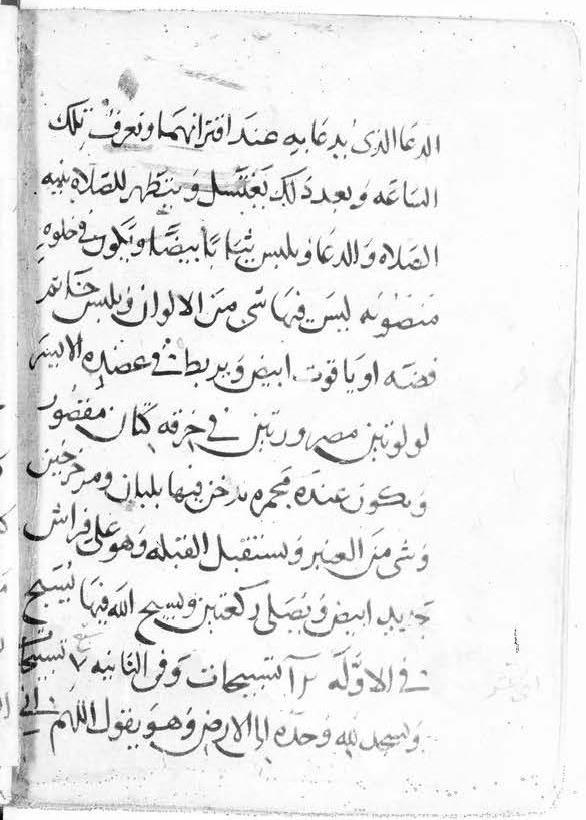 الدعا الذى يدعا به عند اقترانهما وتعرف تلك
الساعه وبعد ذلك يغتسل ويتطهر للصلاه بنيه
الصلاه والدعا ويلبس ثيابا بيضا ويكون في خلوه
مصونه ليس فيها شي من الالوان ويلبس خاتم
فضه او ياقوت ابيض ويربط في عضده الايسر
لولوتين مصرورتين في خرقه كتان مقصور
ويكون عنده مجمره يدخن فيها بلبان ومرزجين
وشي من العنبر ويستقبل القبله وهو على فراش
جديد ابيض ويصلى ركعتين ويسبح الله فيها يسبح
في الاوله تسبيحات وفي الثانيه ٧ تسبيحات
ويسجد لله وحده الى الارض وهو يقول اللهم اني